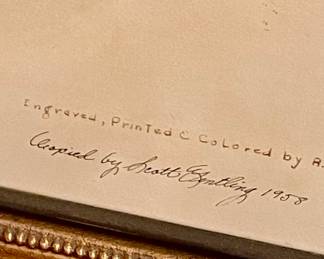 Engraved, Printed & Colored by R.
Copied by Scott Gentling 1958